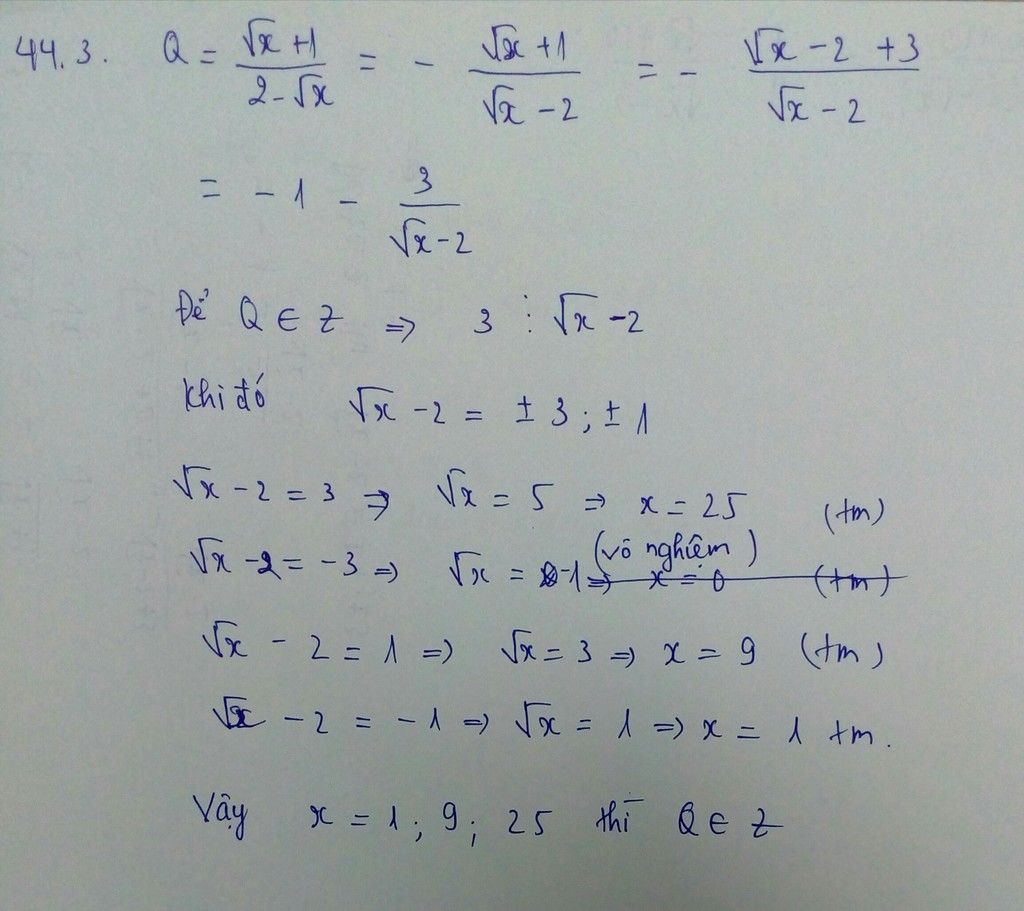 44.3. Q = (√x + 1)/(2 - √x) = - (√x + 1)/(√x - 2) = - (√x - 2 + 3)/(√x - 2)
= - 1 - 3/(√x - 2)
Để Q ∈ Z ⇒ 3 ⋮ √x - 2
Khi đó √x - 2 = ± 3 ; ± 1
√x - 2 = 3 ⇒ √x = 5 ⇒ x = 25 (tm)
√x - 2 = -3 ⇒ √x = -1 (vô nghiệm) ⇒ x = 0 (tm)
√x - 2 = 1 ⇒ √x = 3 ⇒ x = 9 (tm)
√x - 2 = -1 ⇒ √x = 1 ⇒ x = 1 tm.
Vậy x = 1 ; 9 ; 25 thì Q ∈ Z